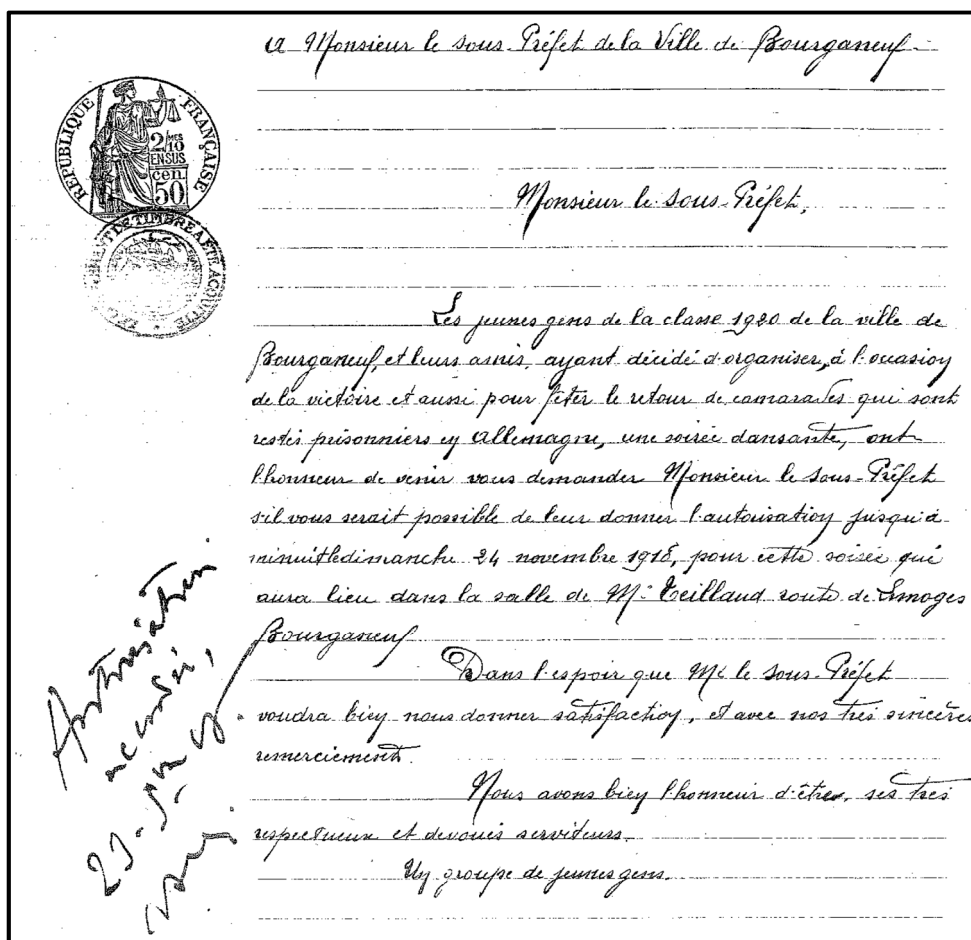 A Monsieur le Sous-Préfet de la Ville de Bourganeuf
RÉPUBLIQUE FRANÇAISE
2/10 MES
EN SUS
cen.
50
Monsieur le Sous-Préfet,
Les jeunes gens de la classe 1920 de la ville de
Bourganeuf, et leurs amis, ayant décidé d'organiser, à l'occasion
de la victoire et aussi pour fêter le retour de camarades qui sont
restés prisonniers en Allemagne, une soirée dansante, ont
l'honneur de venir vous demander Monsieur le Sous-Préfet
s'il vous serait possible de leur donner l'autorisation jusqu'à
minuit le dimanche 24 novembre 1918, pour cette soirée qui
aura lieu dans la salle de Mr Teillaud route de Limoges
Bourganeuf
Dans l'espoir que Mr le Sous-Préfet
voudra bien nous donner satisfaction, et avec nos très sincères
remerciements.
Nous avons bien l'honneur d'être, ses très
respectueux et dévoués serviteurs.
Un groupe de jeunes gens.
Autorisation
accordée,